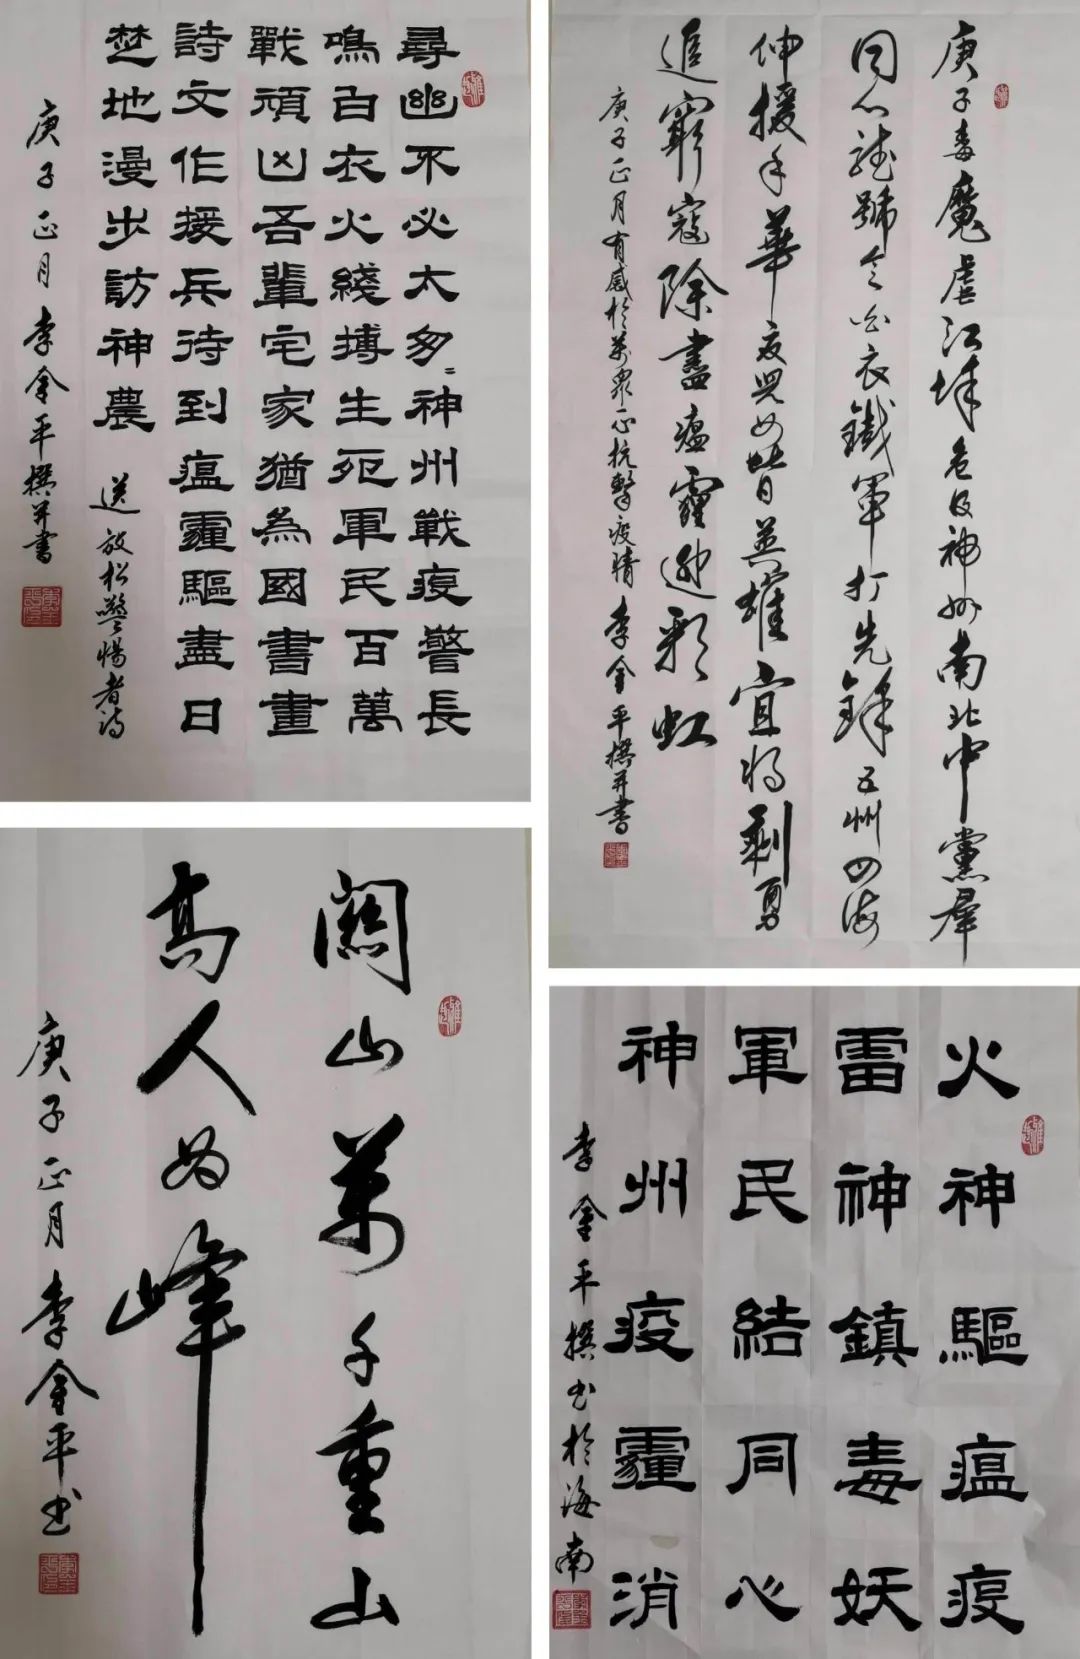 尋幽不必太匆〃神州戰疫警長
鳴白衣火綫搏生死軍民百萬
戰頑凶吾輩宅家猶為國書畫
詩文作援兵待到瘟霾驅盡日
楚地漫步訪神農 送放松警惕者詩
庚子正月李金平撰并書
庚子毒魔虐江城危及神州南北中黨群
同心聽號令白衣鐵軍打先鋒五州四海
伸援手華夏兒女皆英雄宜將剩勇
追窮寇除盡瘟霾迎彩虹
庚子正月有感於萬眾一心抗擊疫情李金平撰并書
關山萬千重山
高人為峰
庚子正月李金平书
火神驅瘟疫
雷神鎮毒妖
軍民結同心
神州疫霾消
李金平撰书於海南